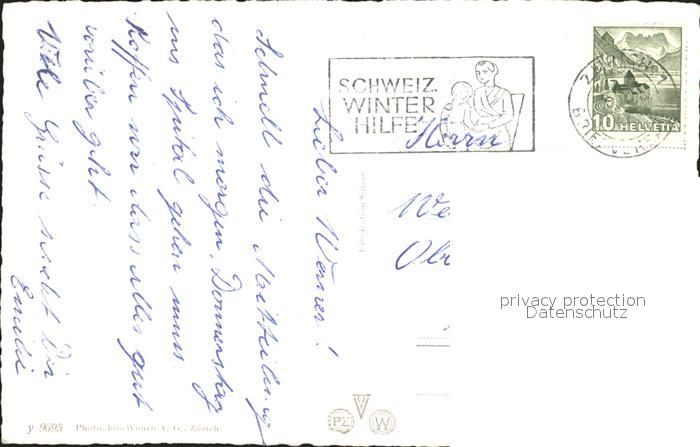 SCHWEIZ.
WINTER
HILFE
ZÜRICH 1
10 HELVETIA
Herrn
We
Obe
privacy protection
Datenschutz
Lieber Werner!
Schnell die Mitteilung
das ich morgen, Donnerstag
ins Spital gehen muss.
Hoffen wir dass alles gut
vorüber geht.
Viele Grüsse sendet Dir
Emilie
Fabrication Suisse
y 9695 Photo, Job. Wehrli A. G., Zürich
PZ
W